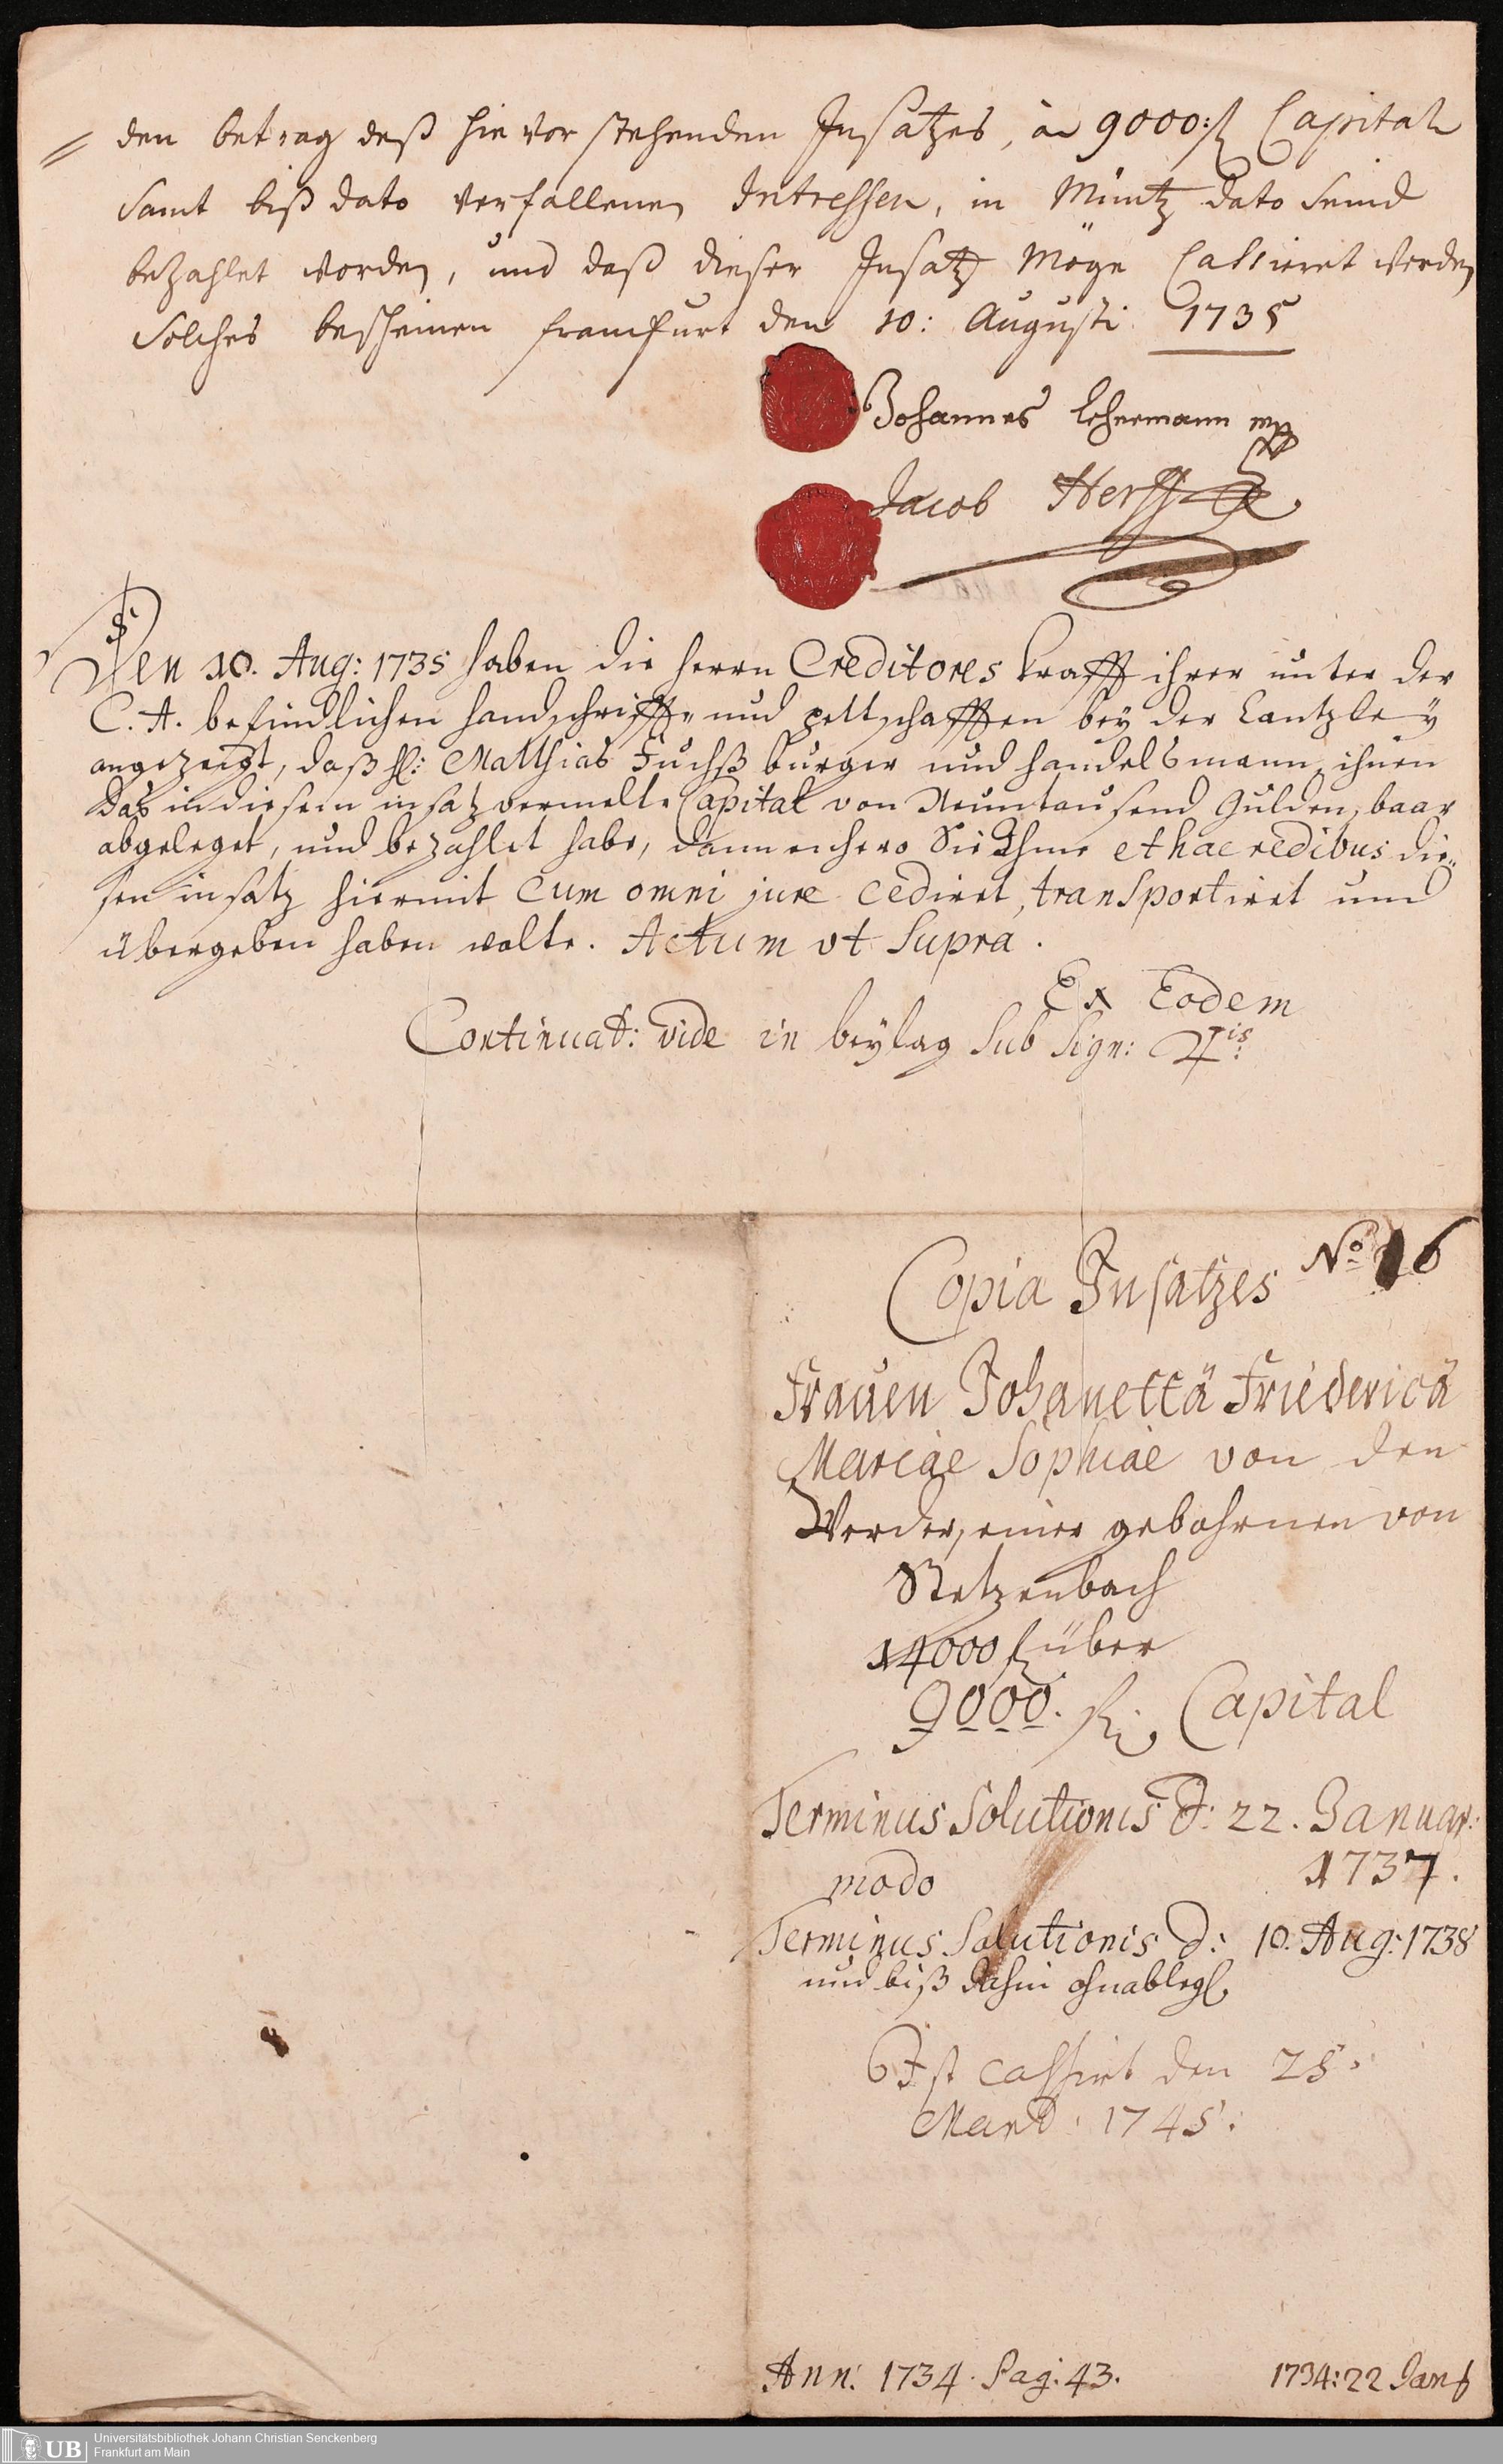 den betrag deß hievor stehenden Insatzes, à 9000: fl Capital
samt biß dato verfallenen Intressen, in Müntz dato seind
bezahlet worden, und daß dieser Insatz möge Cassieret werden
solches bescheinen franckfurt den 10: Augusti 1735
Johannes Lehnemann mpp
Jacob
Den 10. Aug: 1735 haben die herrn Creditores krafft ihrer unter der
C. A. befindlichen handschrifft- und pettschafften bey der Cantzley
angezeigt, daß hl: Matthias Fuchß burger und handelßmann, ihnen
das in diesem insatz vermelte Capital von Neuntausend Gulden, baar
abgeleget, und bezahlet habe, dannenhero Sie Ihme et haeredibus die-
sen insatz hiermit cum omni jure cediret, transportiret und
übergeben haben wolte. Actum vt supra.
Ex Eodem
Continuat: vide in beylag sub sign:
No. 16
Copia Insatzes
Frauen Johanettä Friedericä
Mariae Sophiae von den
Werder, einer gebohrnen von
Stetzenbach
14000 fl über
9000. fl. Capital
Terminus Solutionis d: 22. Januar:
1737.
modo
Terminus Solutionis d: 10. Aug: 1738
und biß dahin ohnablegl.
Ist cassirt den 25.
Mart: 1745.
Ann: 1734. Pag: 43.
1734: 22 Jan
UB
Universitätsbibliothek Johann Christian Senckenberg
Frankfurt am Main